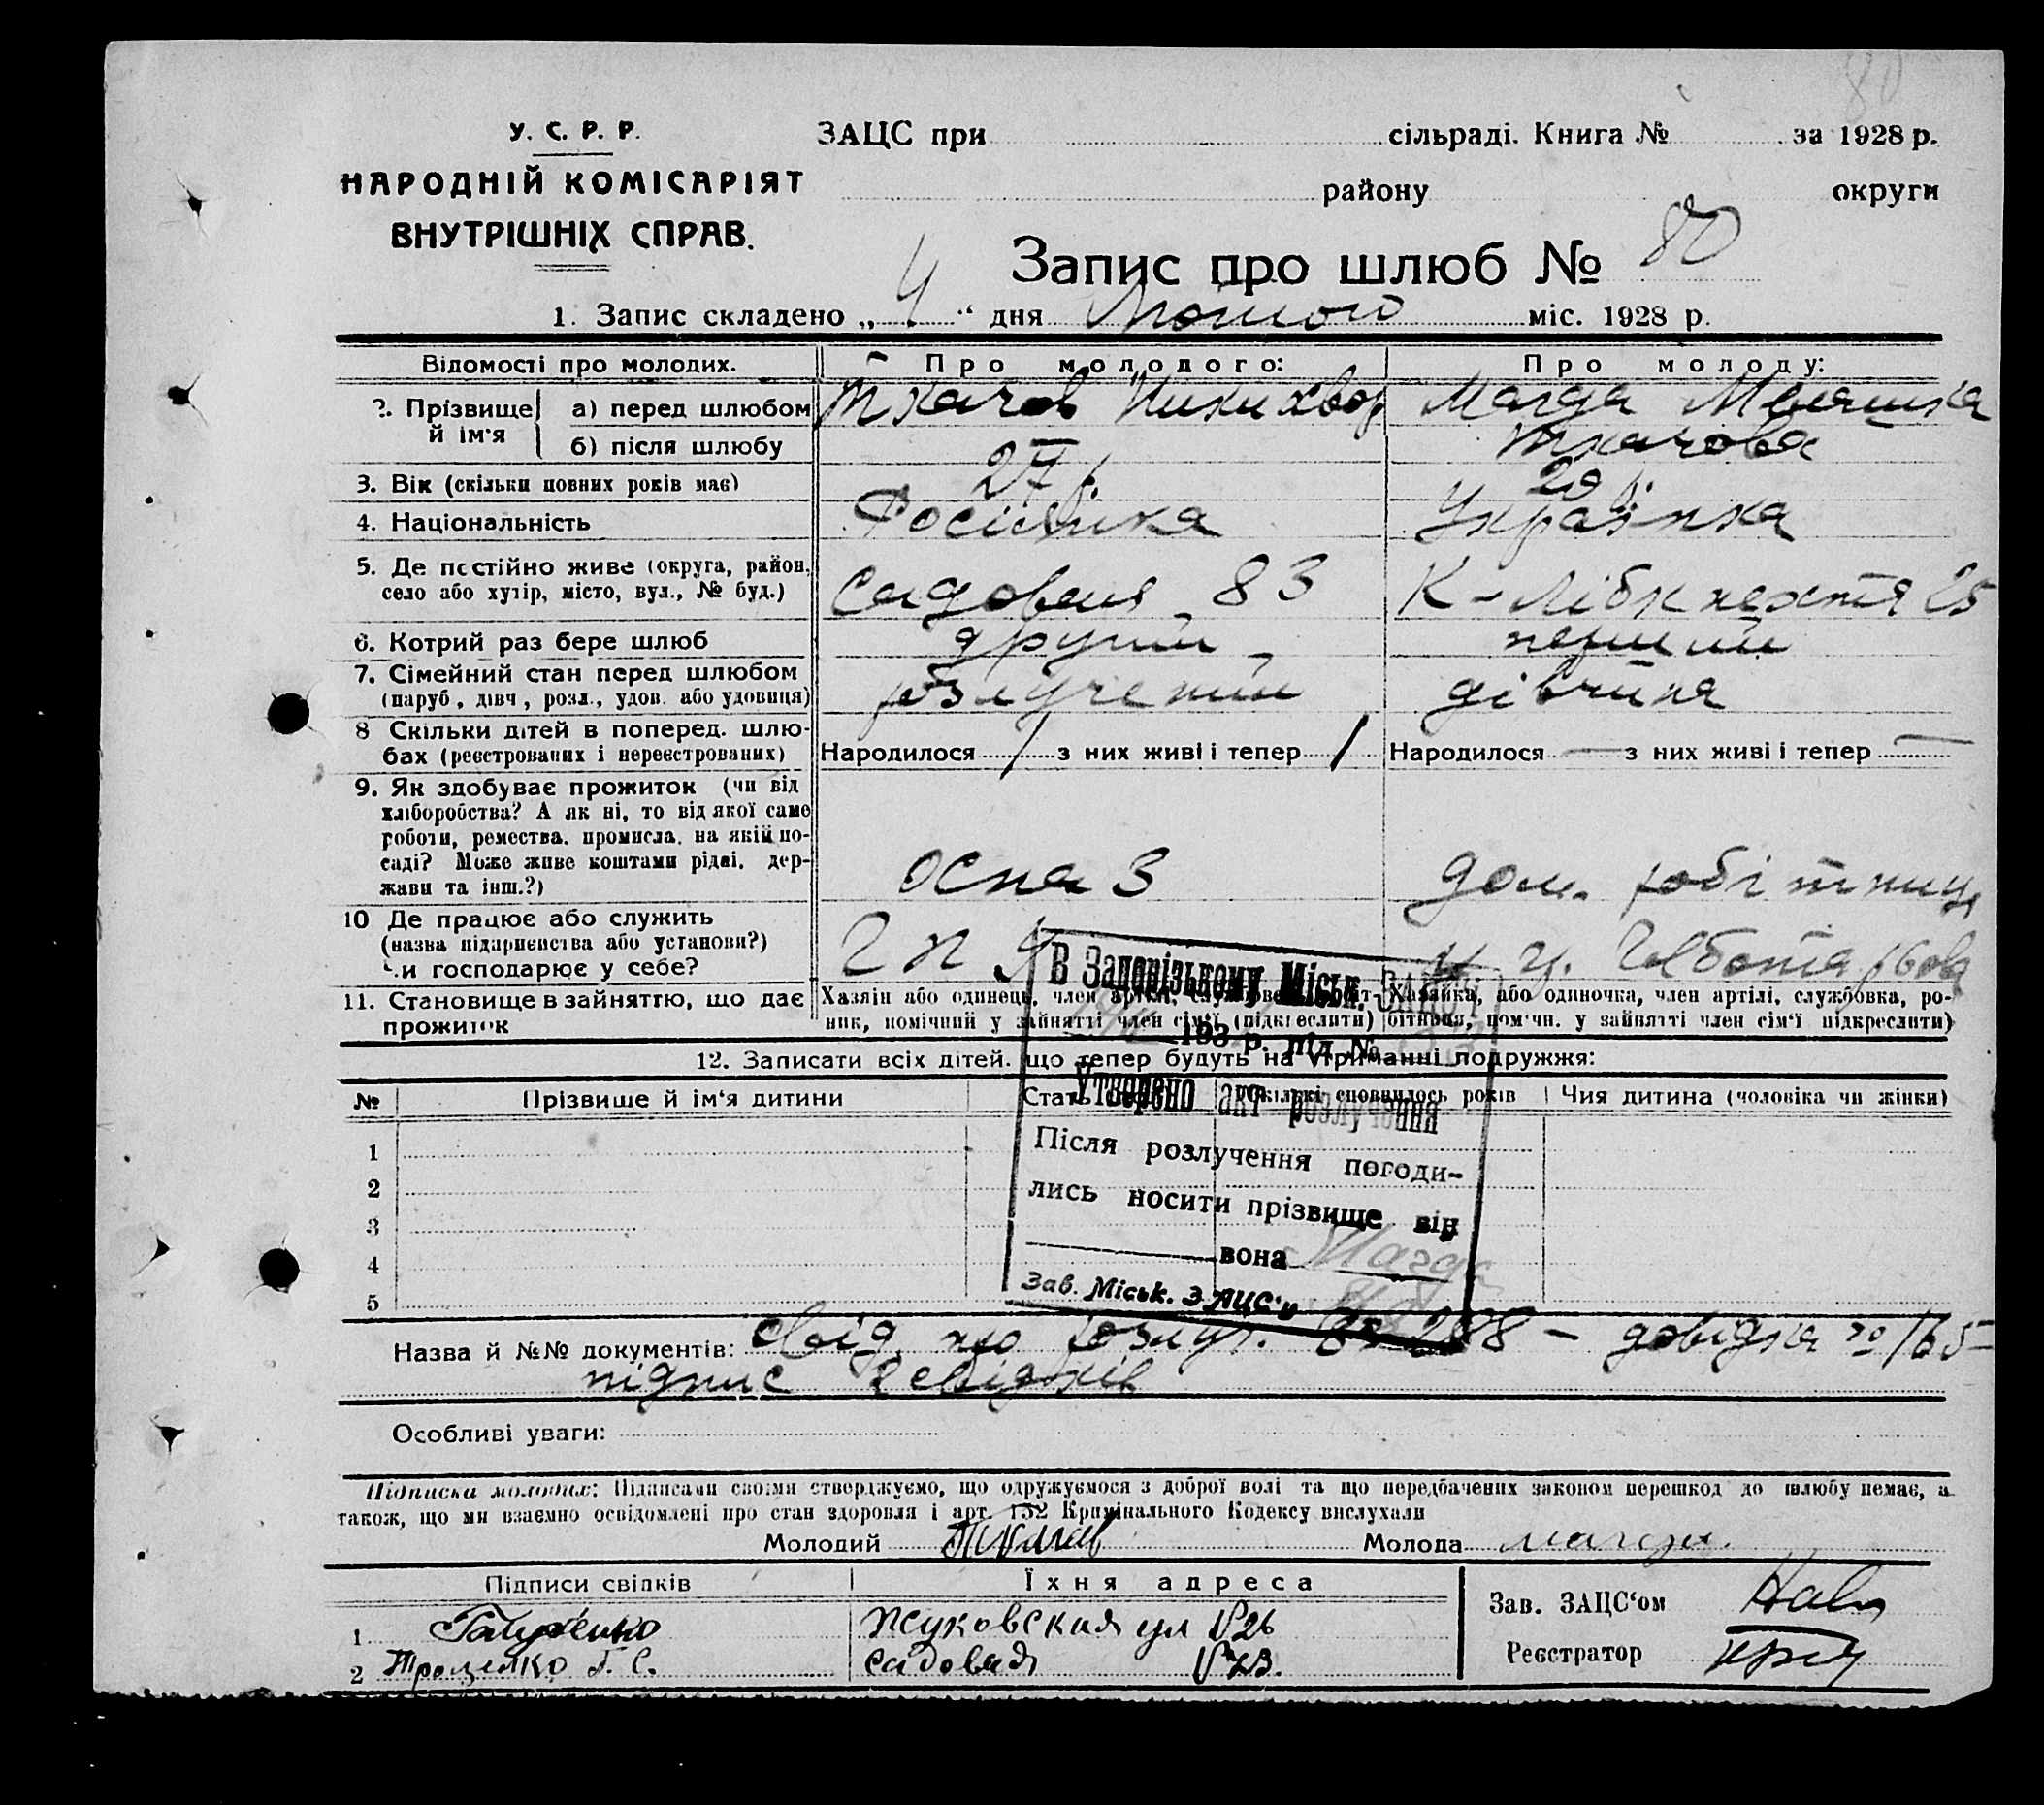 80
У. С. Р. Р.
НАРОДНІЙ КОМІСАРІЯТ
ВНУТРІШНІХ СПРАВ.
ЗАЦС при сільраді. Книга № за 1928 р.
району округи
Запис про шлюб № 80
1. Запис складено „ 4 “ дня Лютого міс. 1928 р.
Відомості про молодих. Про молодого: Про молоду:
2. Прізвище й ім'я а) перед шлюбом Ткачов Никихвор Магда Меляшка
б) після шлюбу Ткачова
3. Вік (скільки повних років має) 27 р. 20 р.
4. Національність Росіянка Українка
5. Де постійно живе (округа, район, село або хутір, місто, вул., № буд.) Садовая 83 К-Лібкнехтя 25
6. Котрий раз бере шлюб другий перший
7. Сімейний стан перед шлюбом (паруб., дівч., розл., удов. або удовиця) розлучений дівчина
8 Скільки дітей в поперед. шлюбах (реєстрованих і нереєстрованих) Народилося 1 з них живі і тепер 1 Народилося — з них живі і тепер —
9. Як здобуває прожиток (чи від хліборобства? А як ні, то від якої саме роботи, ремества, промисла, на якій посаді? Може живе коштами рідні, держави та інш.?) дом. робітниц
10 Де працює або служить (назва підприємства або установи?) Чи господарює у себе?
11. Становище в зайняттю, що дає прожиток
Хазяін або одинець, член артілі, службовець, робітник, помічний у зайнятті член сім'ї (підкреслити)
Хазяйка, або одиночка, член артілі, службовка, робітниця, помічн. у зайнятті член сім'ї підкреслити)
12. Записати всіх дітей, що тепер будуть на утриманні подружжя:
№ Прізвище й ім'я дитини Стать Скількі сповнилось років Чия дитина (чоловіка чи жінки)
1
2
3
4
5
В Запорізькому Міськ-ЗАЦСі
193 р. під №
Утворено акт розлучення
Після розлучення погоди-
лись носити прізвище він
вона Магда
Зав. Міськ. ЗАЦС'у
Назва й №№ документів: Свід. про розлуч. 288 – довідка № 165 –
підпис 2 свідків
Особливі уваги:
Підписка молодих: Підписами своїми стверджуємо, що одружуємося з доброї волі та що передбачених законом перешкод до шлюбу немає, а
також, що ми взаємно освідомлені про стан здоровля і арт. 152 Кримінального Кодексу вислухали
Молодий Ткачев Молода магда.
Підписи свідків Їхня адреса
1 Жуковская ул № 26
2 Троценко Г. С. садовая № 23.
Зав. ЗАЦС'ом
Реєстратор